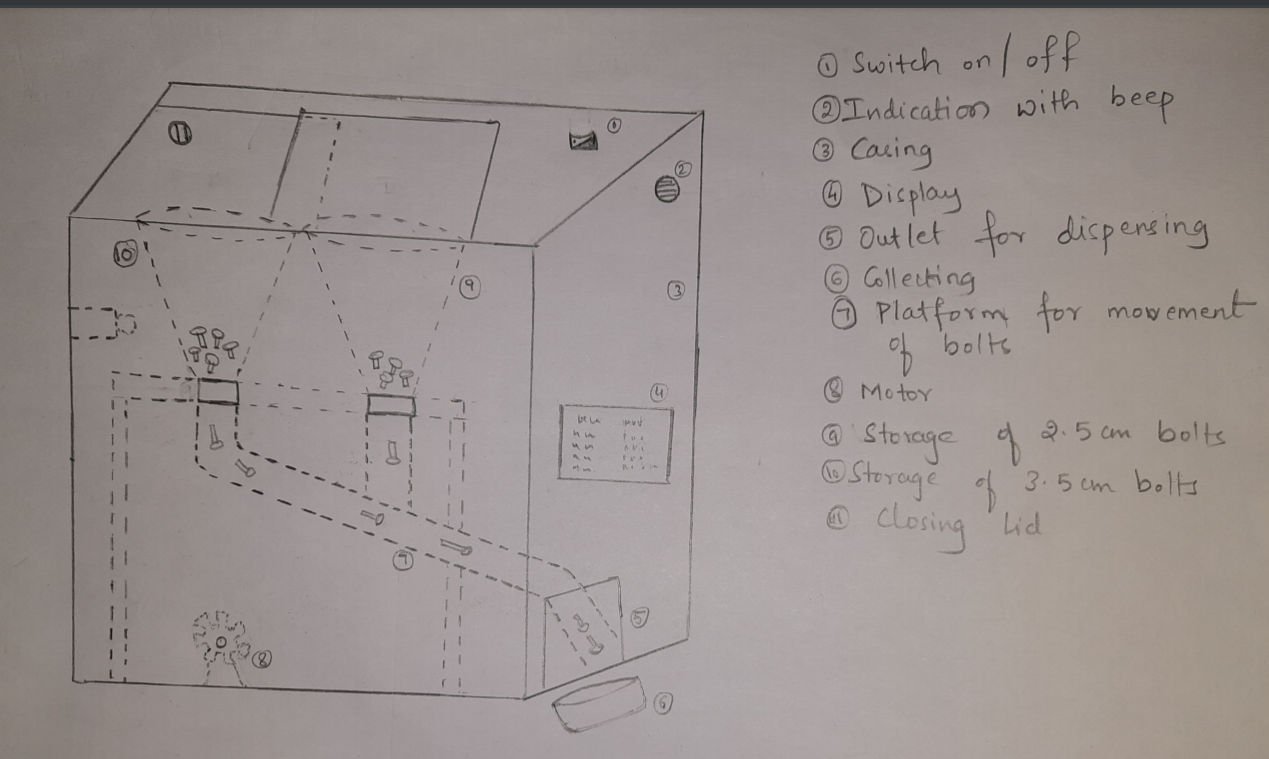 ① Switch on / off
② Indication with beep
③ Casing
④ Display
⑤ Outlet for dispensing
⑥ Collecting
⑦ Platform for movement
of bolts
⑧ Motor
⑨ Storage of 2.5 cm bolts
⑩ Storage of 3.5 cm bolts
⑪ Closing Lid
⑪
①
②
⑩
⑨
③
④
⑦
⑤
⑧
⑥